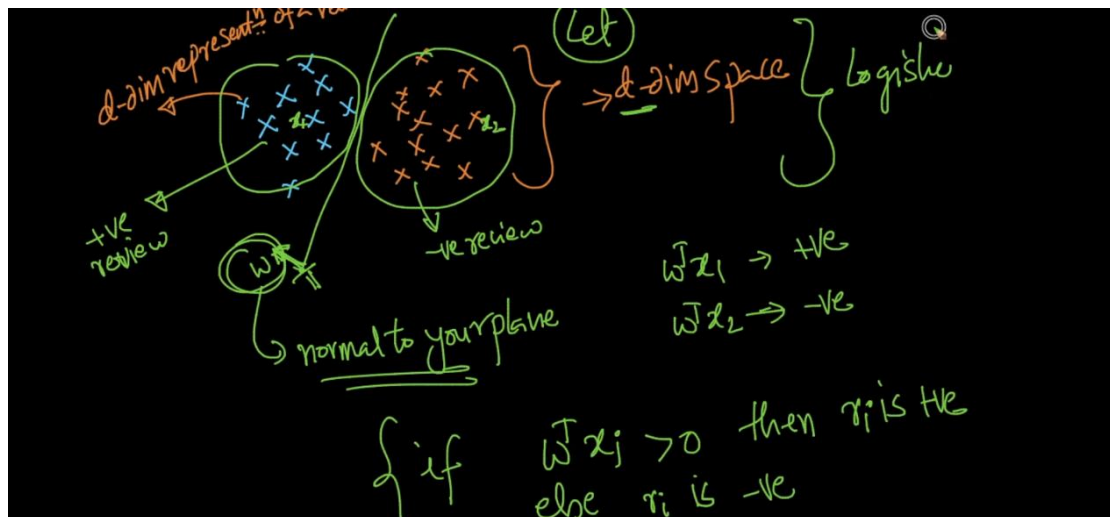 d-dim represent<u>n</u> of a
Let
x₁
x₂
→ d-dim space
Logistic
+ve
review
-ve review
w
normal to your plane
wᵀx₁ → +ve
wᵀx₂ → -ve
if wᵀxᵢ > 0 then rᵢ is +ve
else rᵢ is -ve